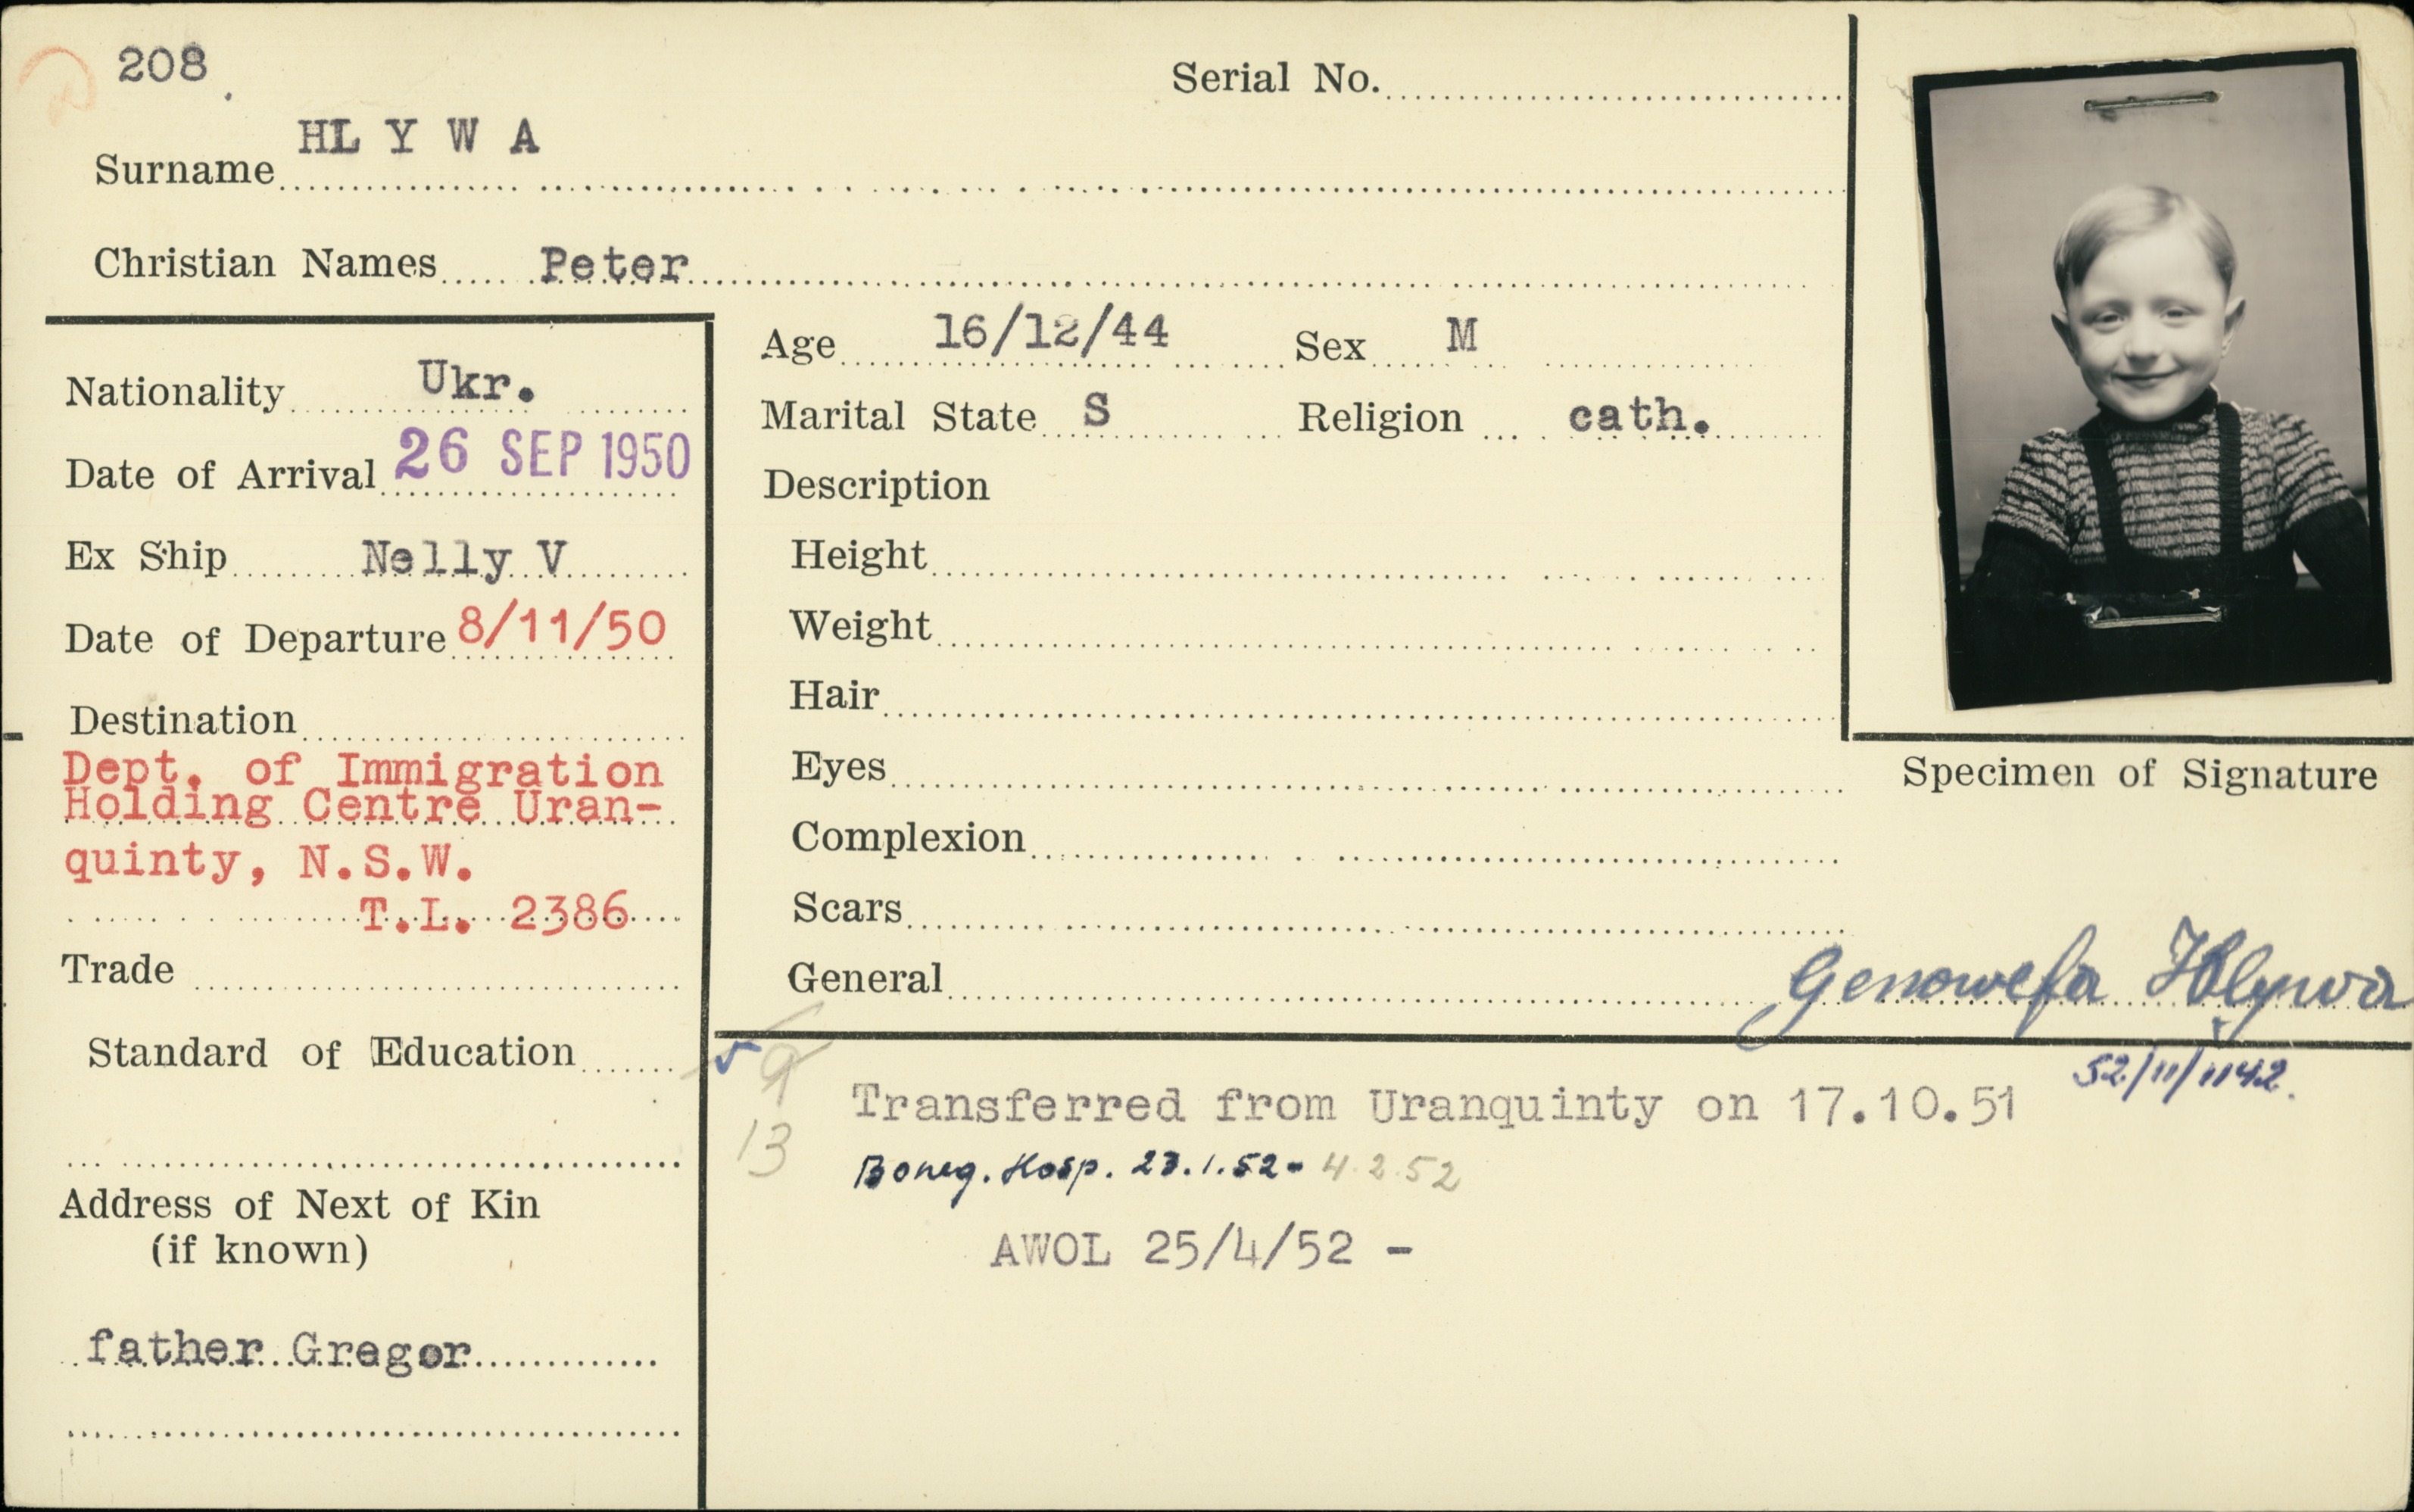 208
Serial No.
HLYWA
Surname
Christian Names Peter
Age 16/12/44 Sex M
Nationality Ukr.
Marital State S Religion cath.
Date of Arrival 26 SEP 1950
Description
Ex Ship Nelly V
Height
Date of Departure 8/11/50
Weight
Hair
Destination
Dept. of Immigration
Holding Centre Uran-
quinty, N.S.W.
T.L. 2386
Eyes
Complexion
Scars
General
Specimen of Signature
Genowefa Hlywa
Trade
Standard of Education
52/11/1142.
9
13
Transferred from Uranquinty on 17.10.51
Boneg. Hosp. 23.1.52- 4.2.52
AWOL 25/4/52 -
Address of Next of Kin
(if known)
father Gregor